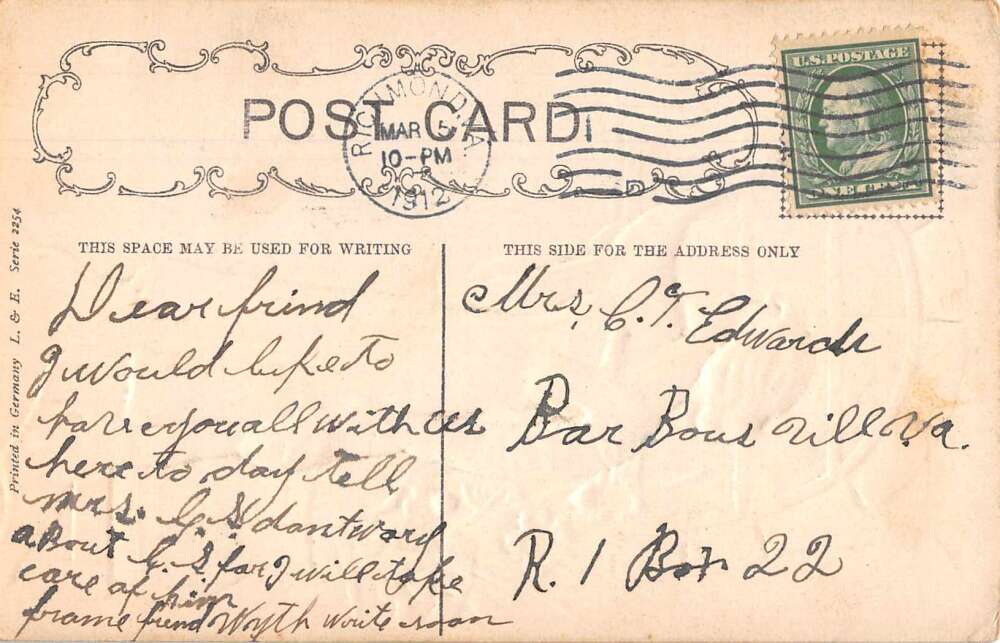 U.S. POSTAGE
POST CARD
RICHMOND, VA.
MAR 5
10-PM
1912
ONE CENT
THIS SPACE MAY BE USED FOR WRITING
Dear frind
I would like to
have you all with us
here to day tell
mrs. G. S dont wory
about G. S for I will take
care of him
frome friend Wyth write soon
THIS SIDE FOR THE ADDRESS ONLY
Mrs, C. T. Edwards
Bar Bous ville Va.
R. 1 Box 22
Printed in Germany L. & E. Serie 2254